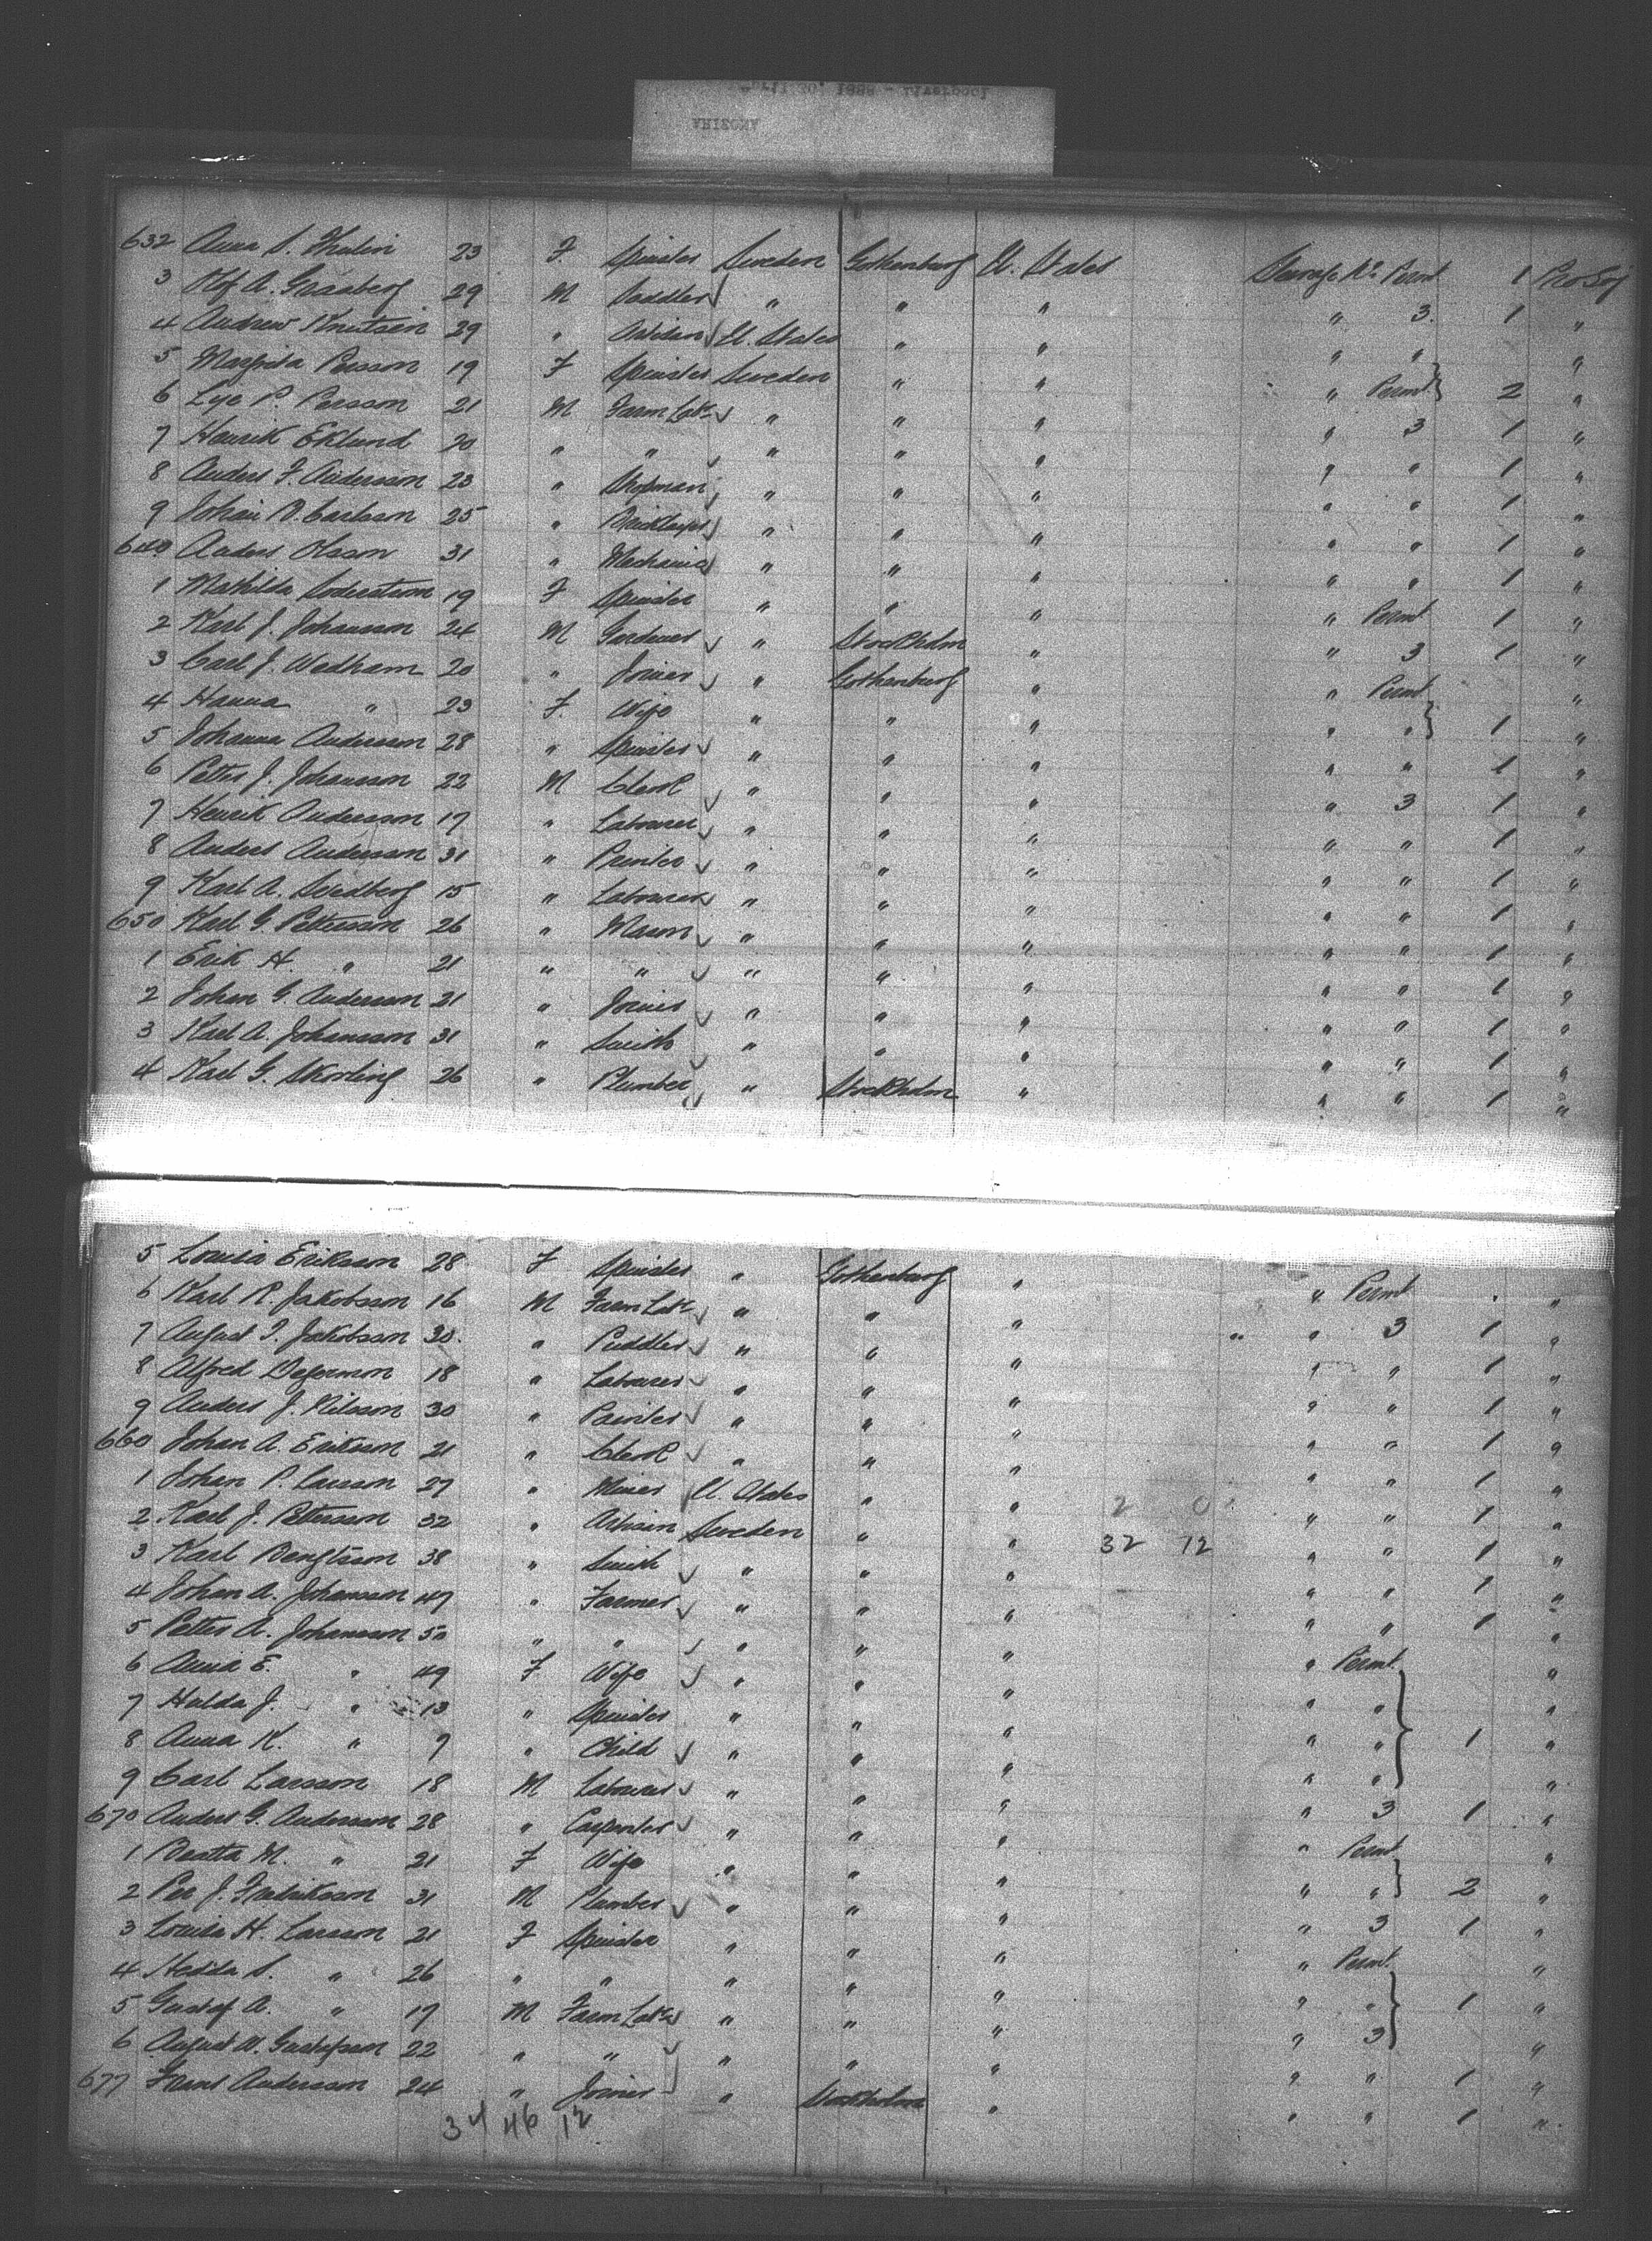 April 30, 1888 - Liverpool
ARIZONA
632 Anna S. Thulin 23 F Spinster Sweden Gothenburg U. States Steerage No Permt 1 Pro Soj
3 Olof A. Grasberg 29 M Saddler " " " " 3 1 "
4 Andrew Knutsen 29 " Artisan U. States " " " " "
5 Margreta Persson 19 F Spinster Sweden " " " Permt 2 "
6 P. Persson 21 M Farm Labr " " " " 3 1 "
7 Henrik Eklund 20 " " " " " " " 1 "
8 Anders F. Andersson 23 " Shopman " " " " " 1 "
9 Johan O. Carlsson 25 " Bricklayer " " " " " 1 "
640 Anders Olsson 31 " Mechanic " " " " " 1 "
1 Mathilda Soderstrom 19 F Spinster " " " " Permt 1 "
2 Karl J. Johansson 24 M Gardener " Stockholm " " 3 1 "
3 Carl J. Wedham 20 " Joiner " Gothenburg " " Permt "
4 Hanna " 23 F Wife " " " " " 1 "
5 Johanna Andersson 28 " Spinster " " " " " 1 "
6 Petter J. Johansson 22 M Clerk " " " " 3 1 "
7 Henrik Andersson 17 " Labourer " " " " " 1 "
8 Anders Andersson 31 " Printer " " " " " 1 "
9 Karl A. 15 " Labourer " " " " " 1 "
650 Karl G. Pettersson 26 " Mason " " " " " 1 "
1 Erik H. " 21 " " " " " " " 1 "
2 Johan G. Andersson 21 " Joiner " " " " " 1 "
3 Karl A. Johansson 31 " Smith " " " " " 1 "
4 Karl G. Skorling 26 " Plumber " Stockholm " " " 1 "
5 Louisa Eriksson 28 F Spinster " Gothenburg " " Permt "
6 Karl R. Jakobsson 16 M Farm Labr " " " " 3 1 "
7 August F. Jakobsson 30 " Puddler " " " " " 1 "
8 Alfred 18 " Labourer " " " " " 1 "
9 Anders J. Nilsson 30 " Painter " " " " " 1 "
660 Johan A. Eriksson 21 " Clerk " " " " " 1 "
1 Johan P. Larsson 27 " Miner U. States " " 2 0 " " 1 "
2 Karl J. Petterson 32 " Artisan Sweden " " 32 72 " " 1 "
3 Karl Bengtsson 38 " Smith " " " " " 1 "
4 Johan A. Johansson 47 " Farmer " " " " " 1 "
5 Petter A. Johansson 50 " " " " " " Permt "
6 Anna E. " 49 F Wife " " " " " "
7 Hulda J. " 13 " Spinster " " " " " 1 "
8 Anna K. " 9 " Child " " " " " "
9 Carl Larsson 18 M Labourer " " " " 3 1 "
670 Anders G. Andersson 28 " Carpenter " " " " Permt "
1 Beatta M. " 21 F Wife " " " " " 2 "
2 Per J. Fredriksson 31 M Plumber " " " " 3 1 "
3 Louisa H. Larsson 21 F Spinster " " " " Permt "
4 Hedda S. " 26 " " " " " " " 1 "
5 Gustaf A. " 17 M Farm Labr " " " " 3 "
6 August W. Gustafsson 22 " " " " " " " 1 "
677 Frans Andersson 24 " Joiner " Stockholm " " " 1 "
34 46 12